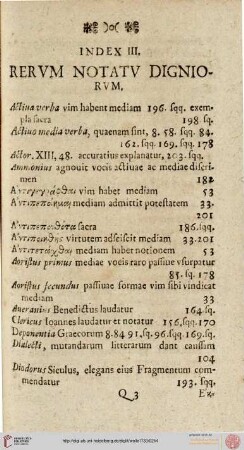 INDEX III.
RERVM NOTATV DIGNIO-
RVM.
Activa verba vim habent mediam 196. sqq. exem-
pla sacra 198 sq.
Activo media verba, quaenam sint, 8. 58. sqq. 84.
162. sqq. 169. sqq. 178
Actor. XIII, 48. accuratius explanatur, 203. sqq.
Ammonius agnouit vocis activae ac mediae discri-
men 182
vim habet mediam 53
mediam admittit potestatem 33.
201
sacra 186. sqq.
virtutem adsciscit mediam 33. 201
mediam haber notionem 53
Aoristus primus mediae vocis raro passiue vsurpatur
85. sq. 178
Aoristus secundus passiuae formae vim sibi vindicat
mediam 33
Aueranius Benedictus laudatur 164. sq.
Clericus Ioannes laudatur et notatur 156, sqq. 170
Deponentia Graecorum 8. 84 91. sq. 96. sqq. 169. sq.
Dialecti, mutandarum litterarum dant caussim
104
Diodorus Siculus, elegans eius Fragmentum com-
mendatur 193. sqq.
Q 3 Ex-